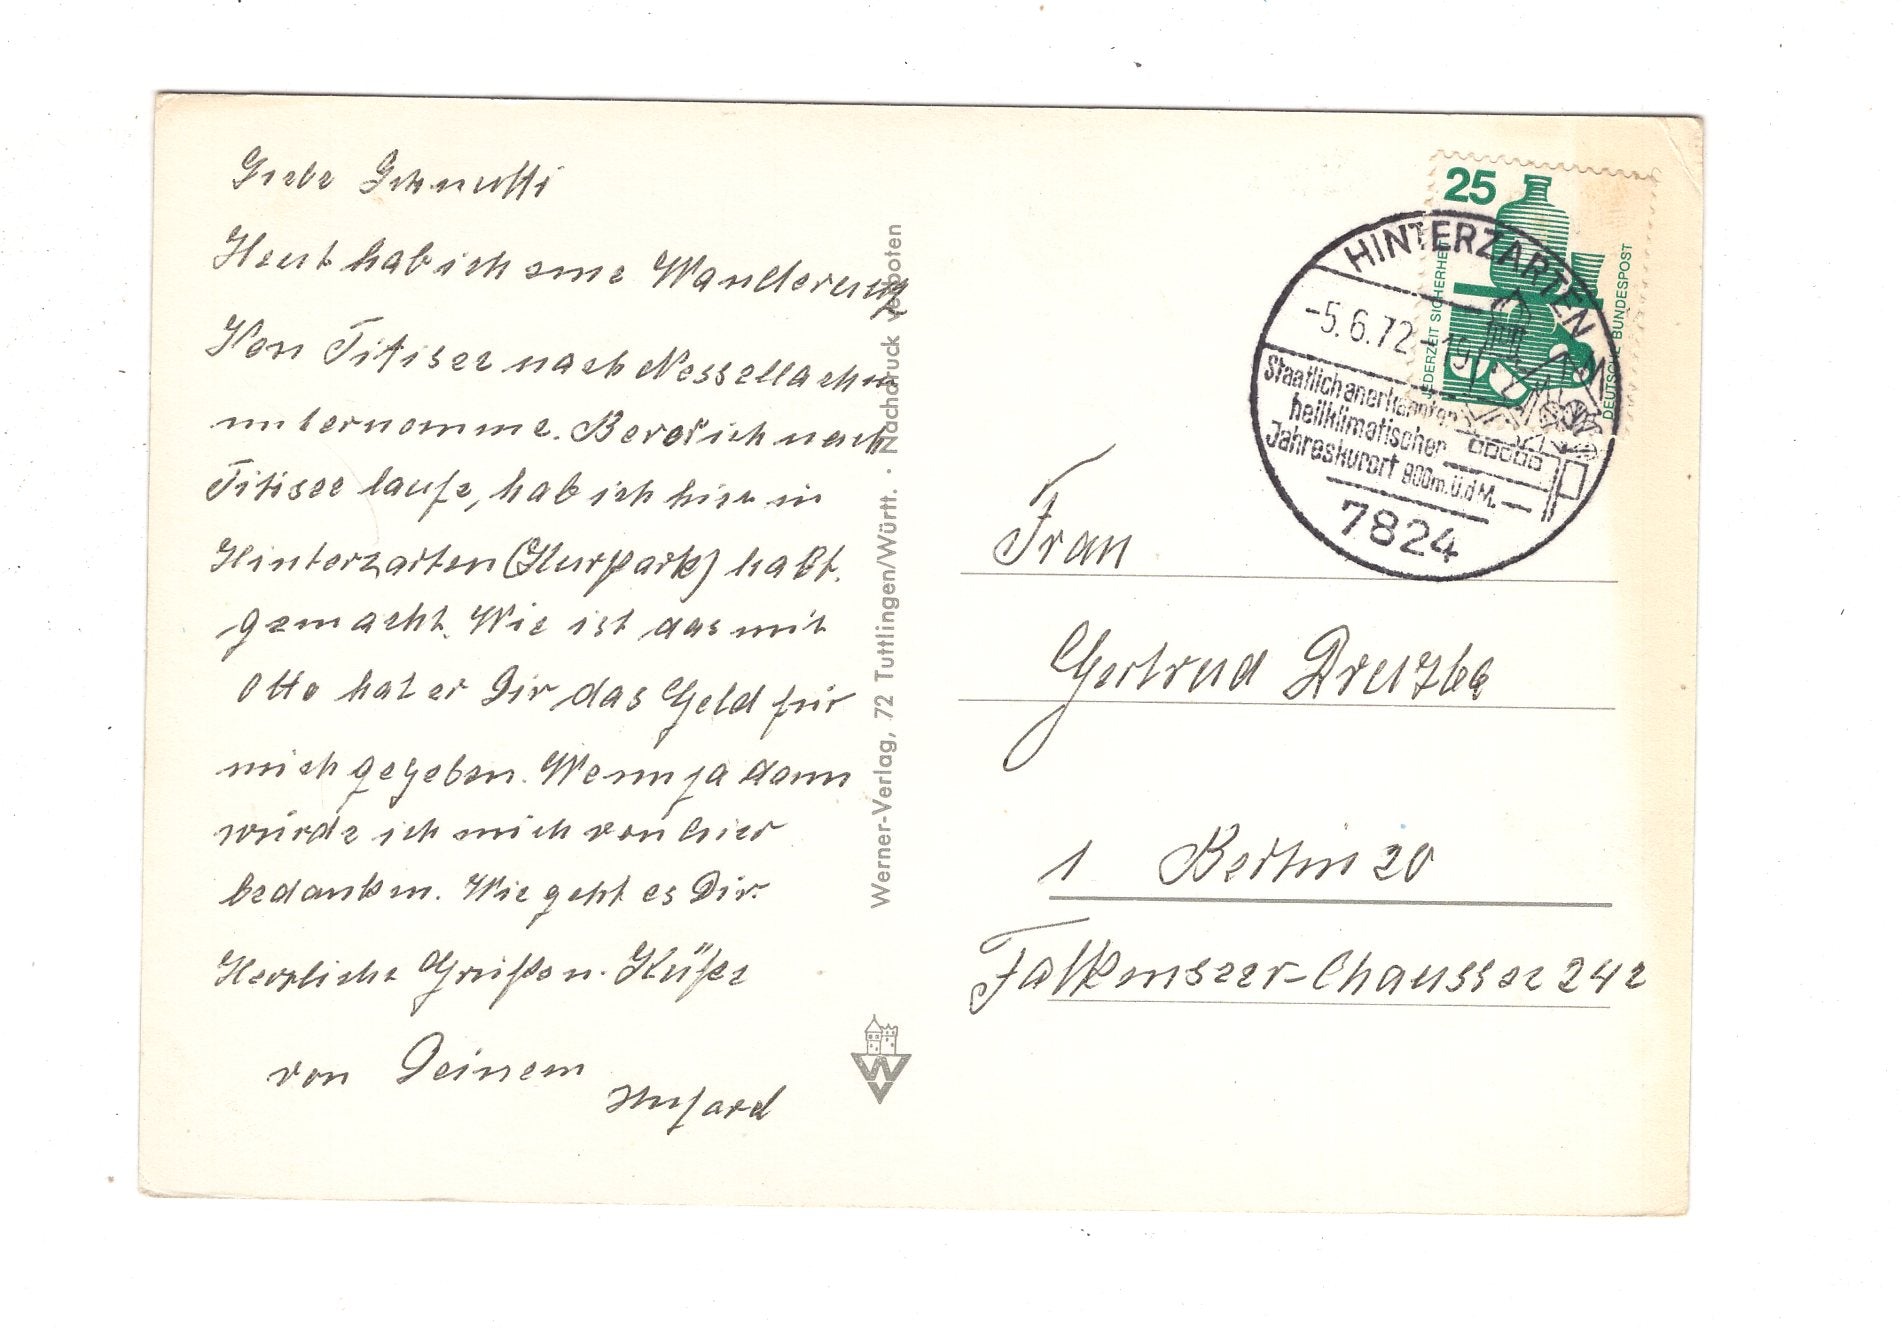 Liebe Schnutti
Heut hab ich eine Wanderung
Von Titisee nach Nessellachen
unternomme. Bevor ich nach
Titisee laufe, hab ich hier in
Hinterzarten (Kurpark) halt.
gemacht. Wie ist das mit
Otto hat er Dir das Geld für
mich gegeben. Wenn ja dann
würde ich mich von hier
bedanken. Wie geht es Dir.
Herzliche Grüßen. Küße
von Deinem
Werner-Verlag, 72 Tuttlingen/Württ. · Nachdruck verboten
W
25
JEDERZEIT SICHERHEIT
DEUTSCHE BUNDESPOST
HINTERZARTEN
-5.6.72-19
Staatlich anerkannter
heilklimatischer
Jahreskurort 900m.ü.d M.
7824
Frau
Gertrud
1 Berlin 20
Falkenseer-Chaussee 242